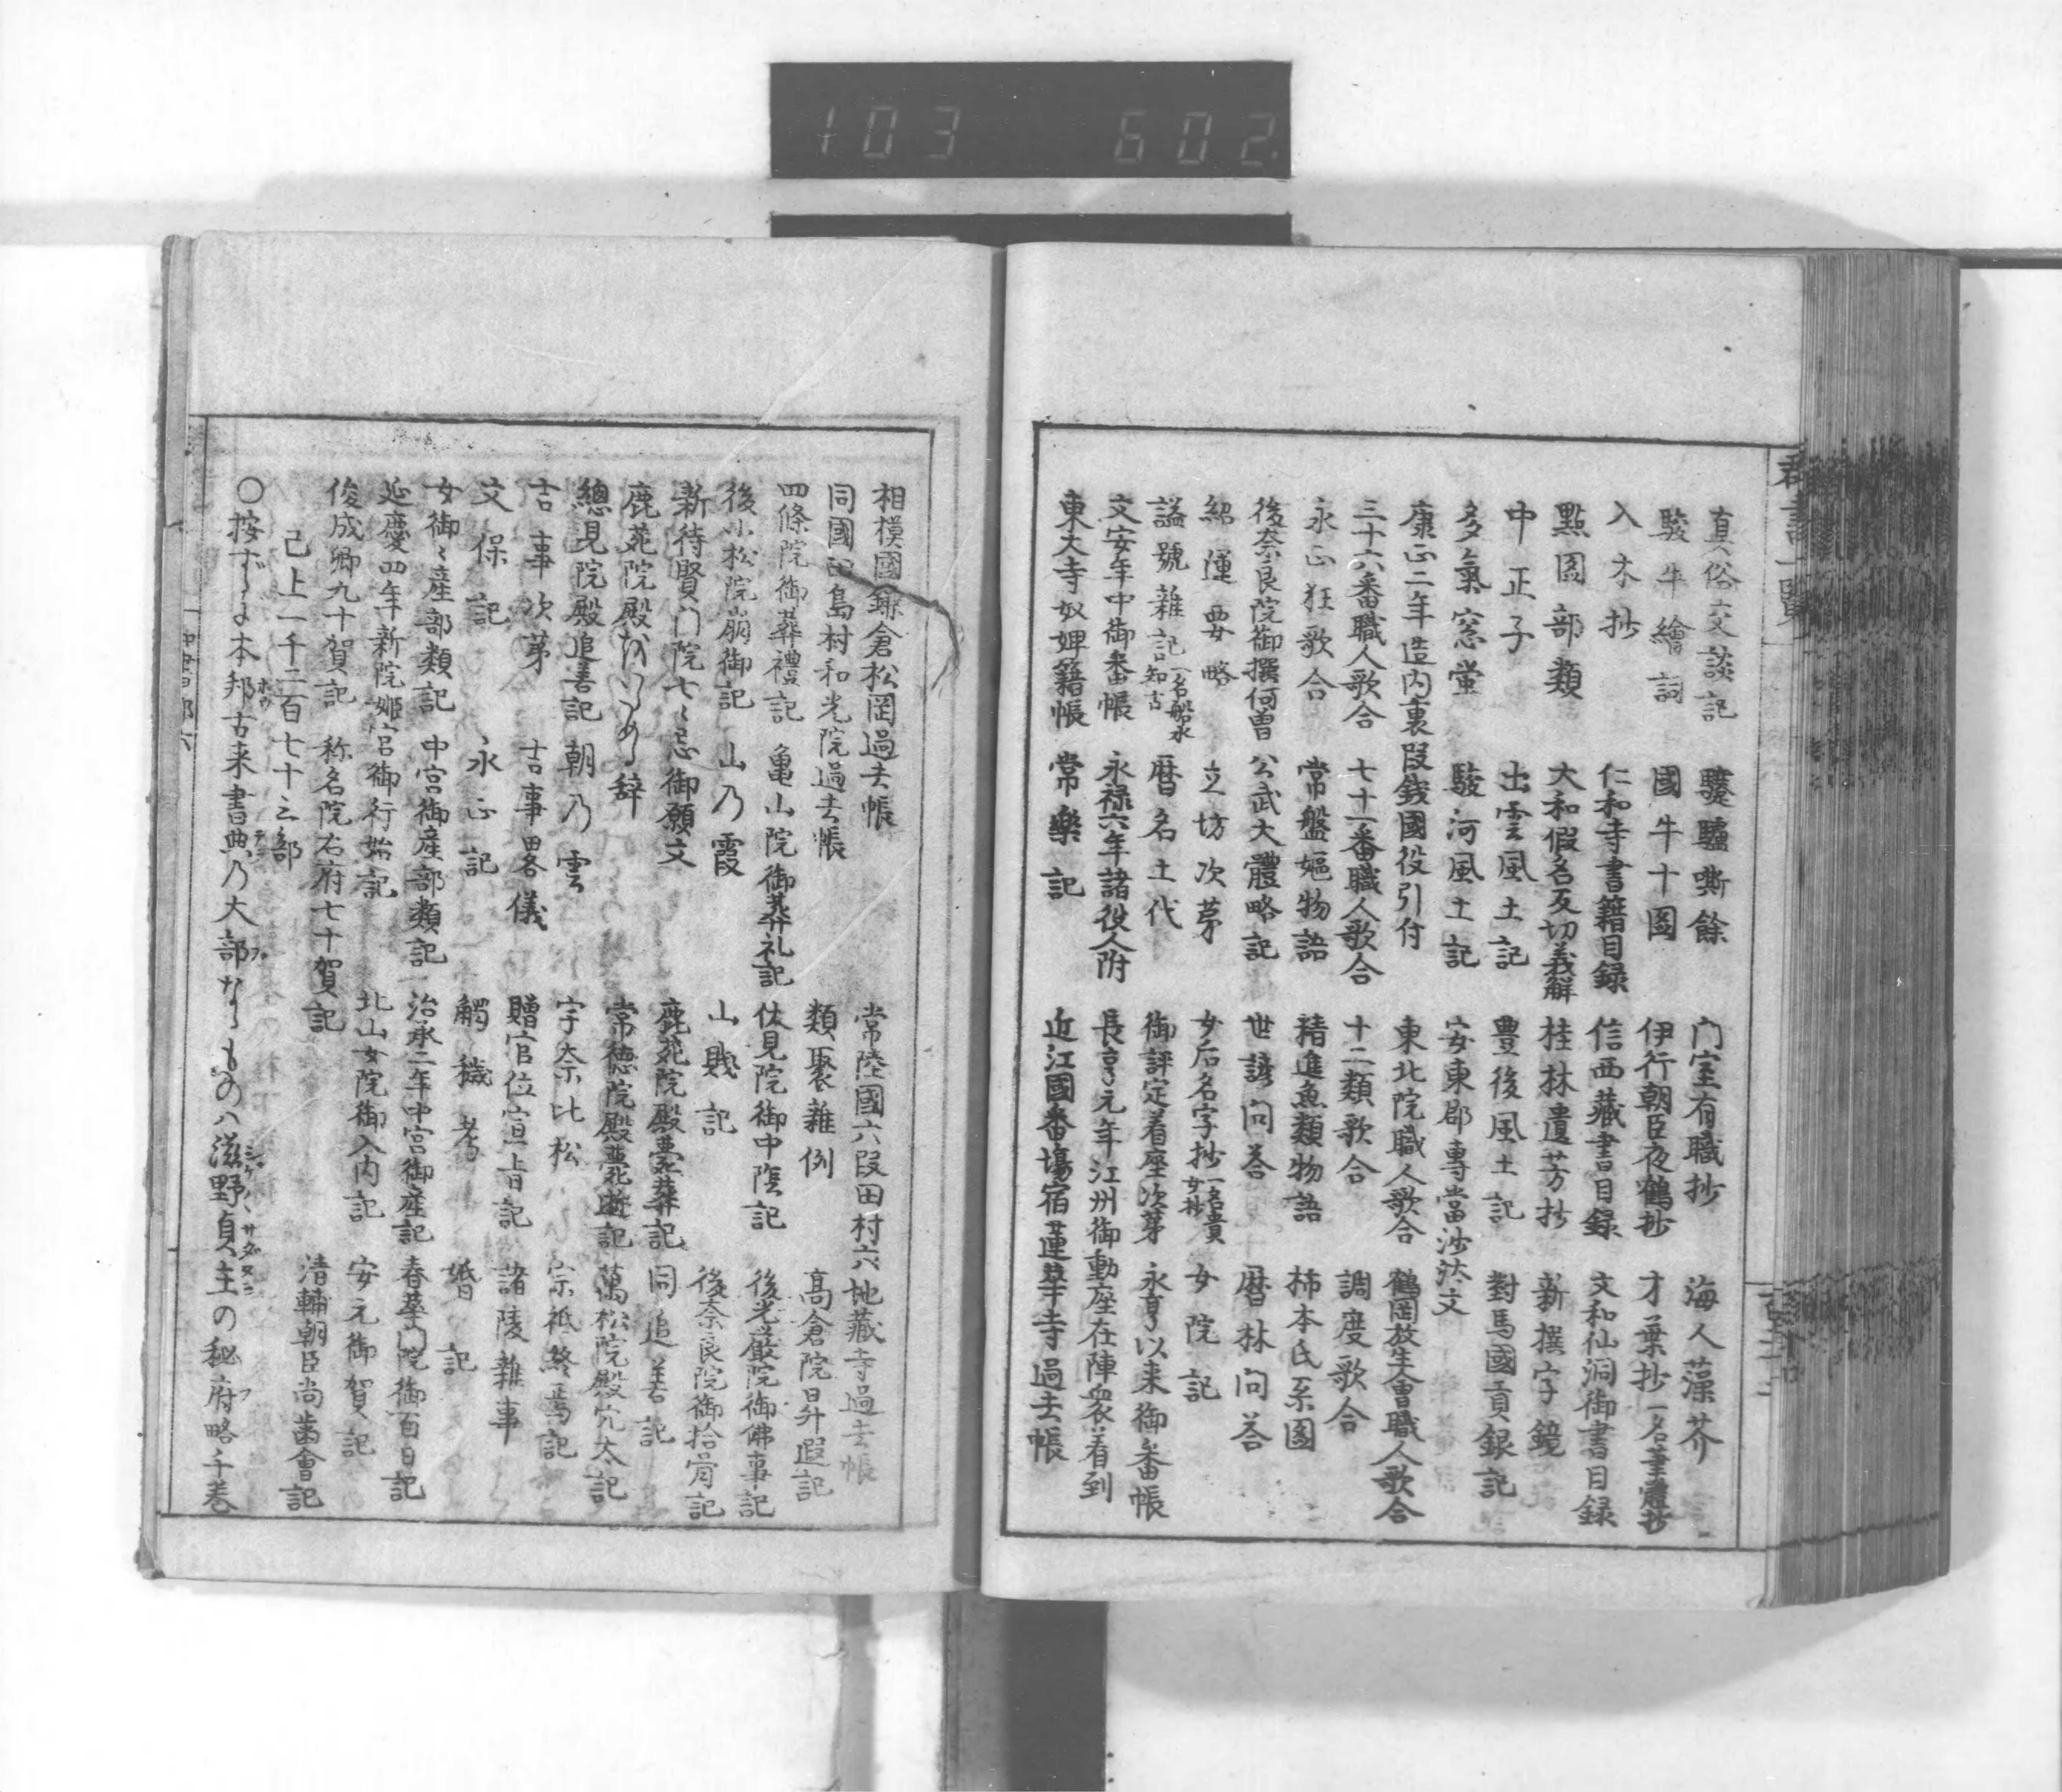 103 602
群書一覽
真俗交談記 驢驢嘶餘 门室有職抄 海人藻芥
駿牛繪詞 國牛十圖 伊行朝臣夜鶴抄 才葉抄一名筆體抄
入木抄 仁和寺書籍目録 信西藏書目録 文和仙洞御書目録
點圖部類 大和假名反切義解 桂林遺芳抄 新撰字鏡
中正子 出雲風土記 豊後風土記 對馬國貢銀記
多氣窓螢 駿河風土記 安東郡專當沙汰文
康正二年造内裏段錢國役引付 東北院職人歌合 鶴岡放生會職人歌合
三十六番職人歌合 七十一番職人歌合 十二類歌合 調度歌合
永正狂歌合 常盤嫗物語 精進魚類物語 柿本氏系圖
後奈良院御撰何曽 公武大體略記 世諺问荅 暦林问荅
紹運要略 立坊次苐 女后名字抄一名貴女抄 女院記
諡號雜記一名船水知古 暦名土代 御評定着座次苐 永享以来御番帳
文安年中御番帳 永禄六年諸役人附 長享元年江州御動座在陣衆着到
東大寺奴婢籍帳 常樂記 近江國番場宿蓮華寺過去帳
相摸國鎌倉松岡過去帳 常陸國六段田村六地藏寺過去帳
同國 島村和光院過去帳 類聚雜例 髙倉院昇遐記
四條院御葬禮記 亀山院御葬礼記 伏見院御中陰記 後光嚴院御佛事記
後小松院崩御記 山乃霞 山賤記 後奈良院御拾骨記
新待賢门院七〻忌御願文 鹿苑院殿薨葬記 同追善記
鹿苑院殿をいためる辞 常徳院殿薨逝記 萬松院殿穴太記
總見院殿追善記 朝乃雲 宇奈比松 宗祇終焉記
吉事次苐 吉事畧儀 贈官位宣旨記 諸陵雜事
文保記 永正記 觸穢考 婚記
女御〻産部類記 中宮御産部類記 治承二年中宮御産記 春華门院御百日記
延慶四年新院姫宮御行始記 北山女院御入内記 安元御賀記
俊成卿九十賀記 称名院右府七十賀記 清輔朝臣尚齒會記
己上一千二百七十三部
〇按ずるに本邦古来書典乃大部なるものハ滋野貞主の秘府略千巻